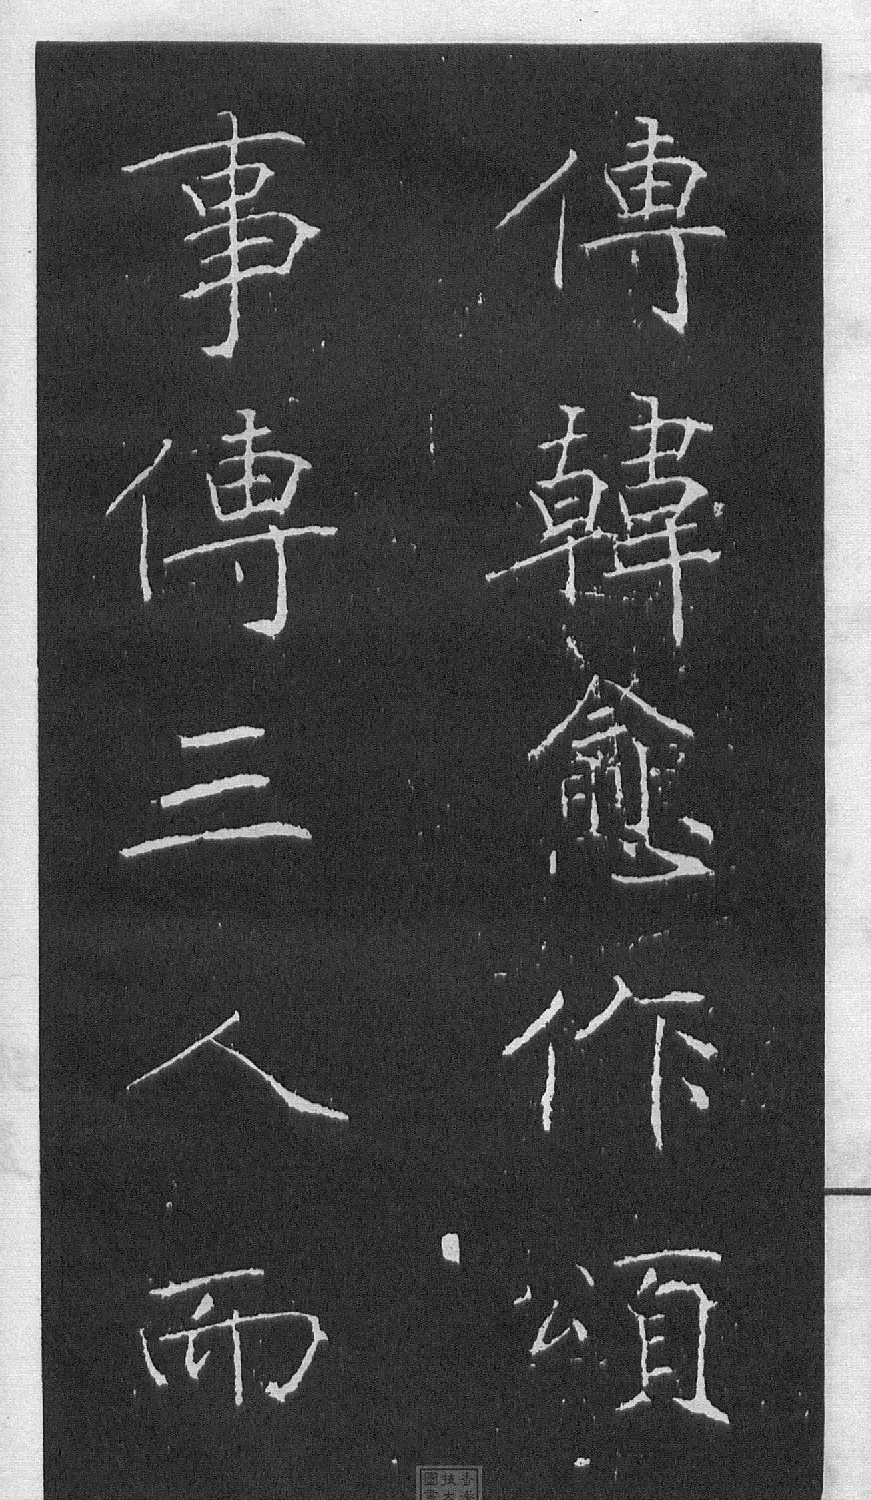 傳韓愈作頌
事傳三人而